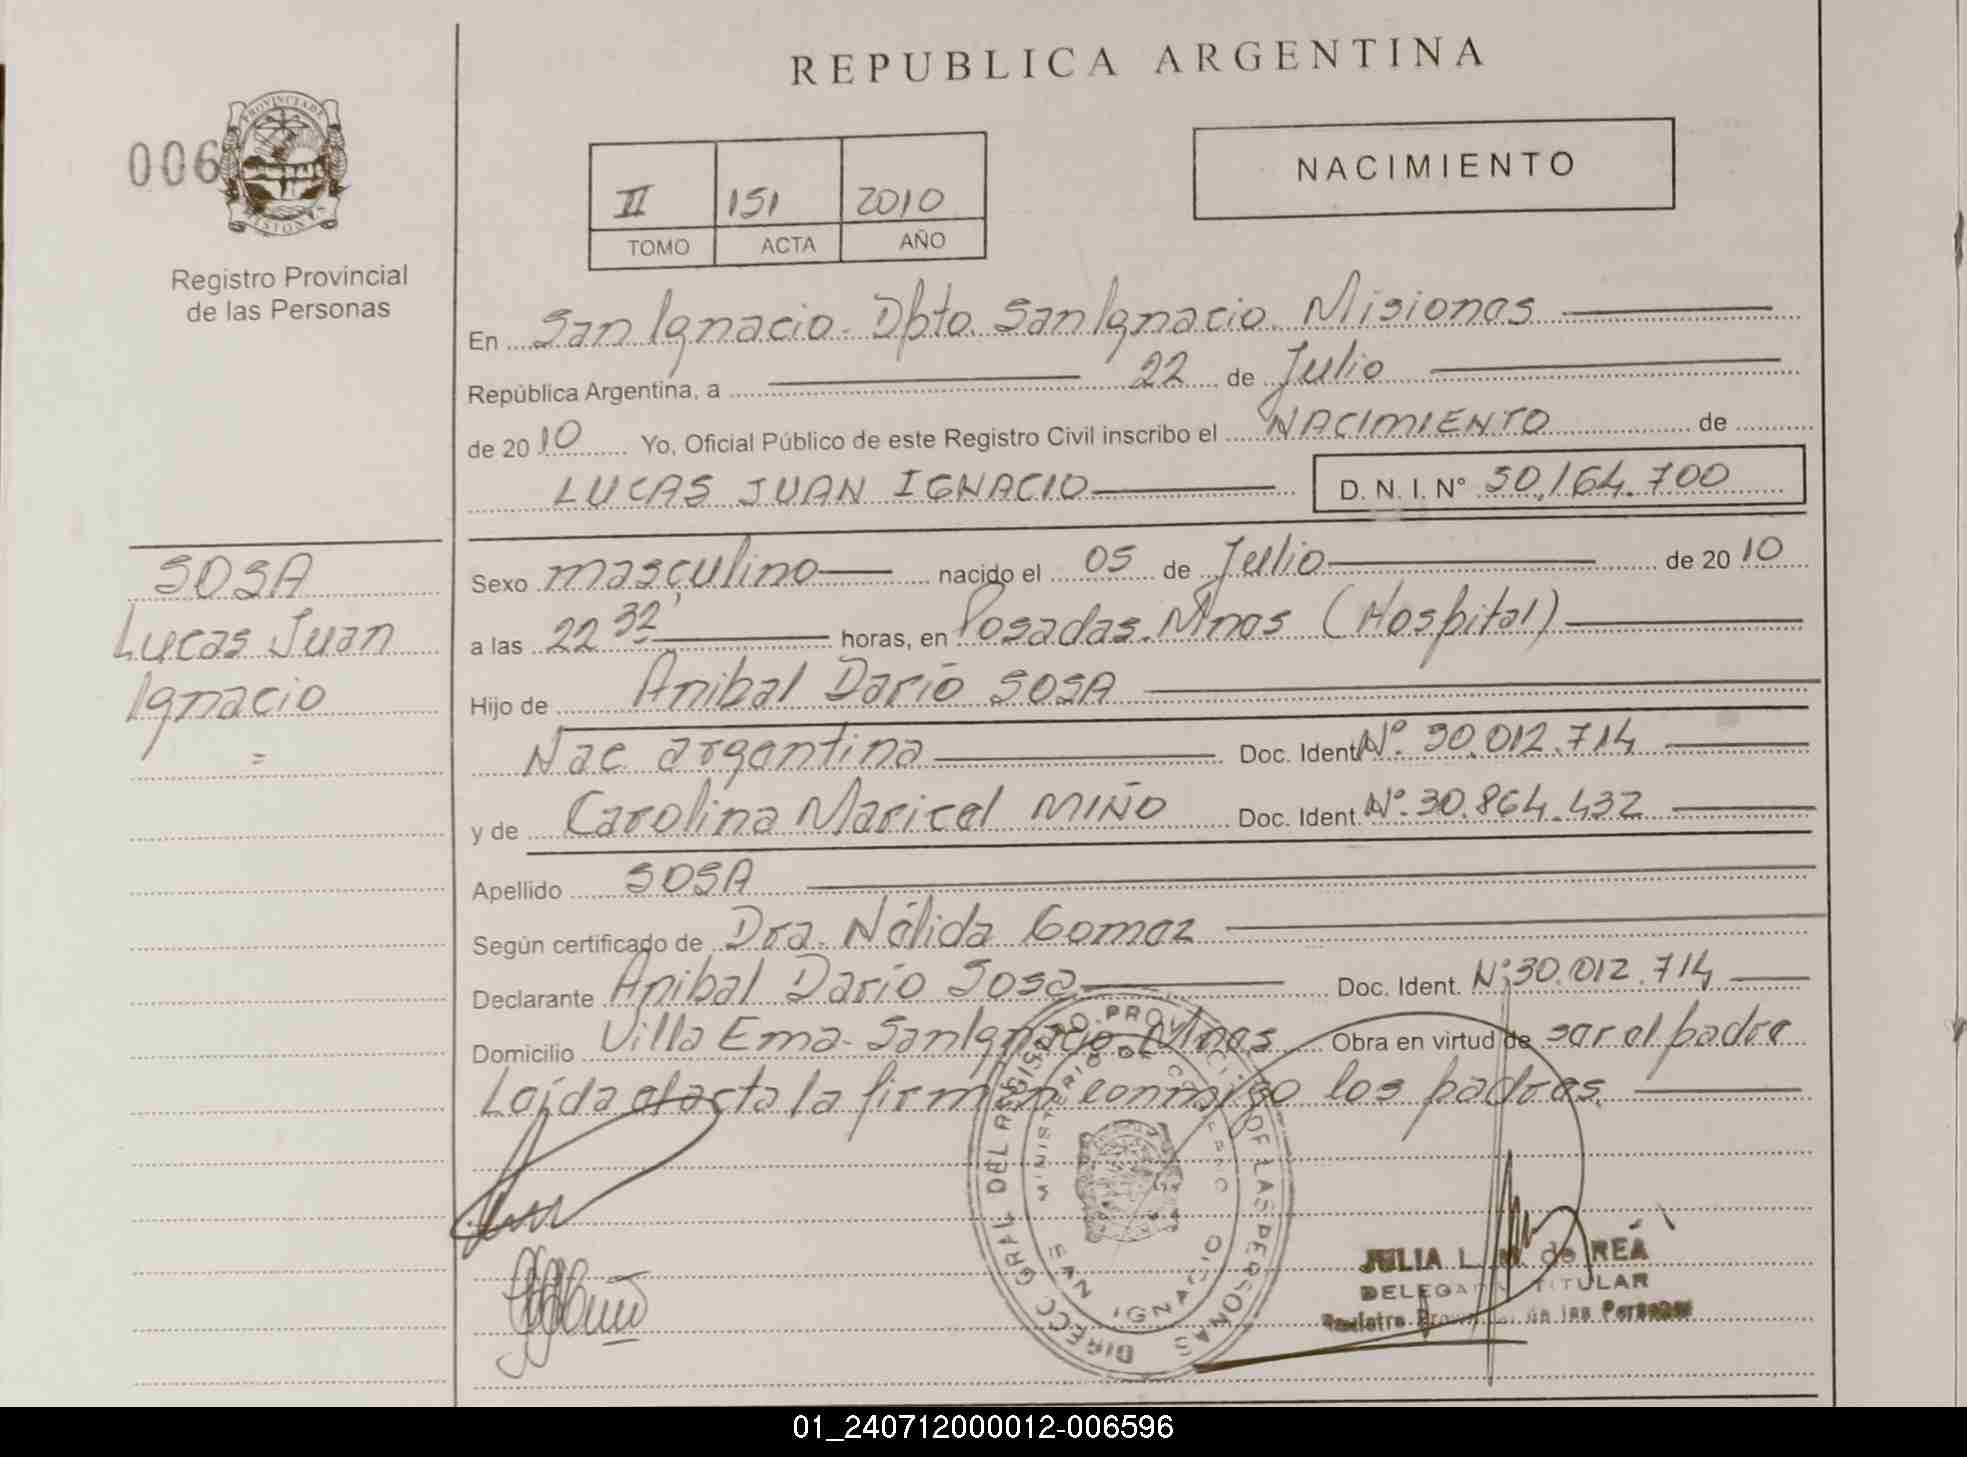 REPUBLICA ARGENTINA
006
PROVINCIA DE MISIONES
Registro Provincial
de las Personas
II 151 2010
TOMO ACTA AÑO
NACIMIENTO
En San Ignacio. Dpto. San Ignacio. Misiones
República Argentina, a 22 de Julio
de 2010 Yo, Oficial Público de este Registro Civil inscribo el NACIMIENTO de
LUCAS JUAN IGNACIO D. N. I. N° 50.164.700
Sexo masculino nacido el 05 de Julio de 2010
a las 22 32 horas, en Posadas. Mnes (Hospital)
Hijo de Anibal Darío SOSA
Nac argentina Doc. Ident N° 30.012.714
y de Carolina Maricel MIÑO Doc. Ident. N° 30.864.432
Apellido SOSA
Según certificado de Dra. Nélida Gomez
Declarante Anibal Darío Sosa Doc. Ident. N° 30.012.714
Domicilio Villa Ema. San Ignacio Mnes Obra en virtud de ser el padre
Leída el acta la firman conmigo los padres.
SOSA
Lucas Juan
Ignacio
=
DIRECC. GRAL. DEL REGISTRO PROVINCIAL DE LAS PERSONAS
SAN IGNACIO
JULIA L. de REA
DELEGADA TITULAR
Registro Provincial de las Personas
01_240712000012-006596